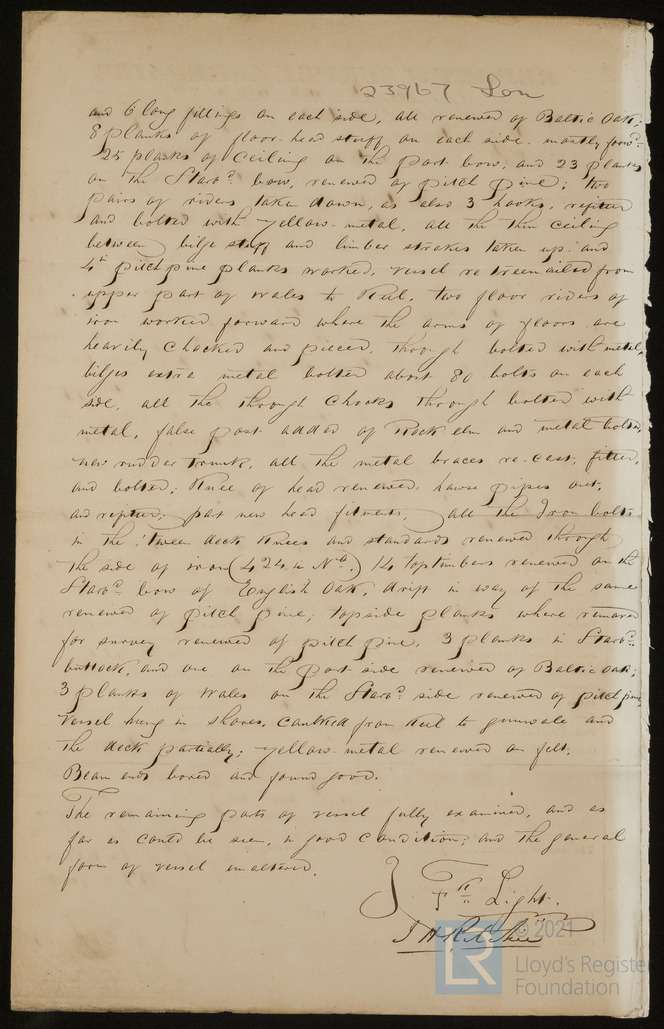 23967 Lon
and 6 long fittings on each side, all renewed of Baltic Oak;
8 planks of floor head stuff on each side mostly forwd
25 planks of ceiling on the Port bow, and 23 planks
on the Starbd bow, renewed of pitch pine; two
pairs of riders taken down, as also 3 hooks, refitted
and bolted with yellow metal, all the thin ceiling
between bilge stuff and limber strakes taken up and
4in pitch pine planks worked, vessel retreenailed from
upper part of wales to Keel. two floor riders of
iron worked forward where the arms of floors are
heavily chocked and pieced, through bolted with metal,
bilges extra metal bolted about 80 bolts on each
side, all the through chocks through bolted with
metal, false post added of Rock elm and metal bolted,
new rudder trunk, all the metal braces re-cast, fitted,
and bolted; Knee of head renewed hawse pipes out,
and refitted; part new head fitments, all the Iron bolts
in the 'tween deck Knees and standards renewed through
the side of iron (424 in No.) 14 toptimbers renewed on the
Starbd bow of English Oak, drift in way of the same
renewed of pitch pine; topside planks where removed
for survey renewed of pitch pine, 3 planks in Starbd
buttock, and one on the Port side renewed of Baltic Oak;
3 planks of wales on the Starbd side renewed of pitch pine,
vessel hung in shores, caulked from keel to gunwale and
the deck partially; yellow metal renewed on felt.
Beam ends bored and found good.
The remaining parts of vessel fully examined, and as
far as could be seen, in good condition; and the general
form of vessel unaltered.
Light.
J H Ritchie
© 2021
LR
Lloyd's Register
Foundation